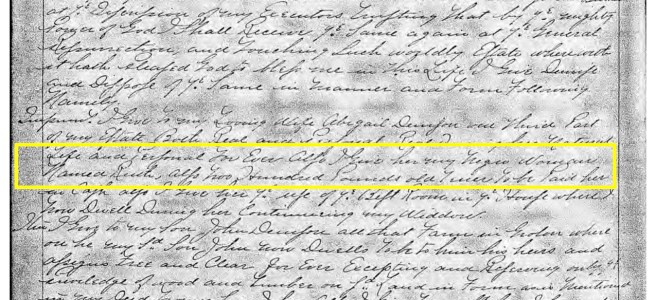 at ye Discression of my Executors Trusting that by ye mighty
Power of God I Shall Receive ye Same again at ye General
Resurrection, and touching Such worldly Estate wherewith
it hath pleased God to bless me in this Life, I Give Demise
and Dispose of ye Same in manner and Form Following
Namely
Imprims I Give to my Loving Wife Abigail Denison one Third Part
of my Estate Both Real and Personal
Life and Personal For Ever Also I Give her my Negro Woman
Named Also Two Hundred Pounds old Tener to be Paid her
in Cash also I Give her ye use of ye Best Room in ye House where I
now Dwell During her Continuering my Widdow
Item I Give to my Son John Denison all that Farm in where
on he my Sd Son John now Dwells To be to him his heirs and
assigns Free and Clear for Ever Excepting and Reserving only
of wood and timber on Sd and in Form as is Mentioned
in my Deed